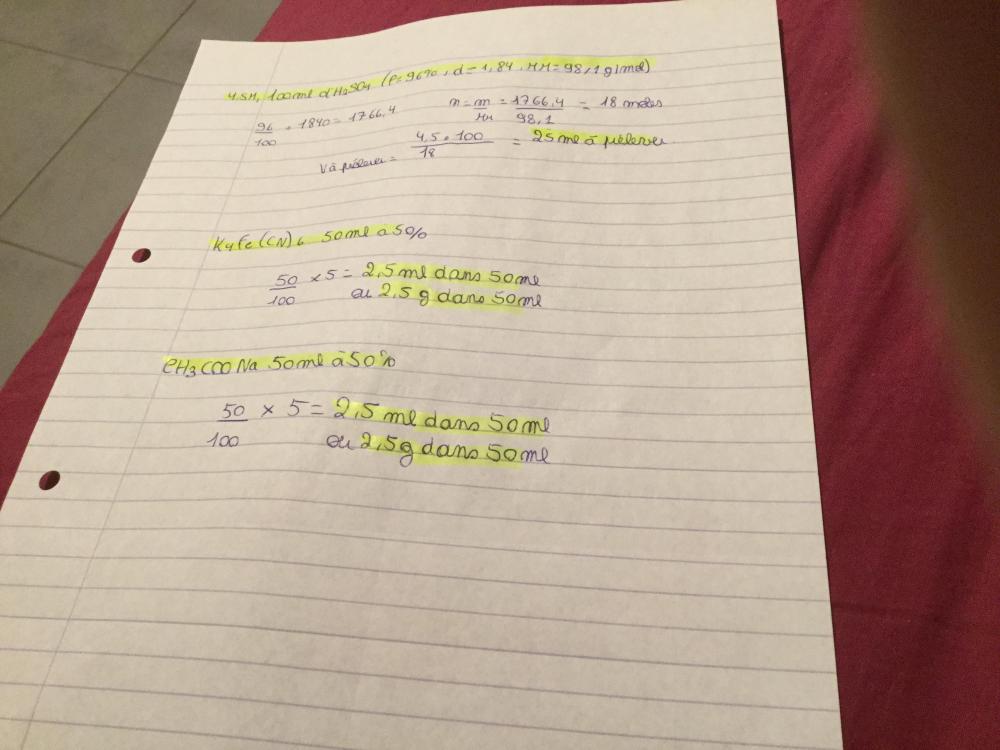 4.5M, 100ml d'H2SO4 (P=96%, d=1,84, MM=98,1 g/mol)
96/100 * 1840 = 1766,4 n = m/MM = 1766,4/98,1 = 18 moles
V à prélever = 4,5 * 100/18 = 25 ml à prélever.
K4Fe(CN)6 50ml à 50%
50/100 x 5 = 2,5 ml dans 50ml
ou 2,5 g dans 50ml
CH3COONa 50ml à 50%
50/100 x 5 = 2,5 ml dans 50ml
ou 2,5g dans 50ml